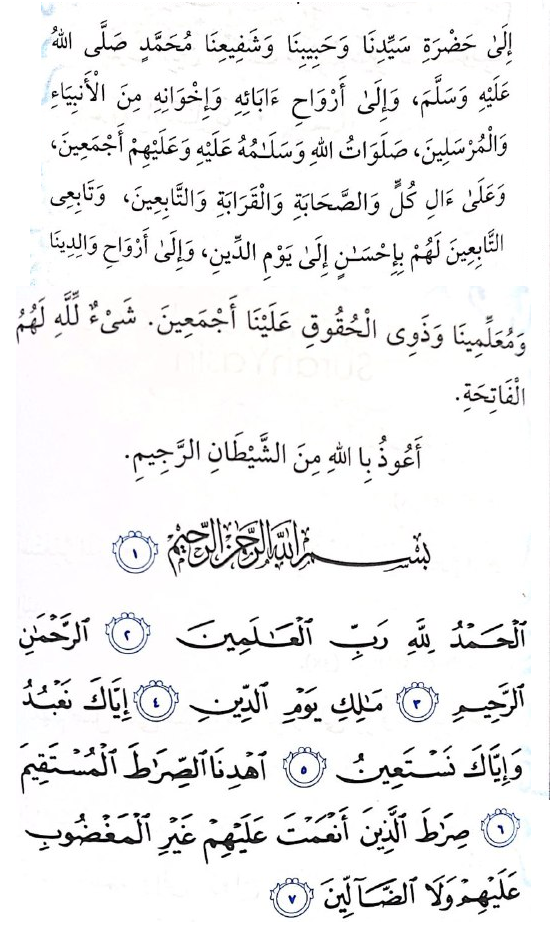 إِلَىٰ حَضْرَةِ سَيِّدِنَا وَحَبِيبِنَا وَشَفِيعِنَا مُحَمَّدٍ صَلَّى اللهُ
عَلَيْهِ وَسَلَّمَ، وَإِلَىٰ أَرْوَاحِ ءَابَائِهِ وَإِخْوَانِهِ مِنَ الْأَنْبِيَاءِ
وَالْمُرْسَلِينَ، صَلَوَاتُ اللهِ وَسَلَـٰمُهُ عَلَيْهِ وَعَلَيْهِمْ أَجْمَعِينَ،
وَعَلَىٰ ءَالِ كُلٍّ وَالصَّحَابَةِ وَالْقَرَابَةِ وَالتَّابِعِينَ، وَتَابِعِى
التَّابِعِينَ لَهُمْ بِإِحْسَـٰنٍ إِلَىٰ يَوْمِ الدِّينِ، وَإِلَىٰ أَرْوَاحِ وَالِدِينَا
وَمُعَلِّمِينَا وَذَوِى الْحُقُوقِ عَلَيْنَا أَجْمَعِينَ. شَىْءٌ لِّلَّهِ لَهُمُ
الْفَاتِحَةِ.
أَعُوذُ بِا اللهِ مِنَ الشَّيْطَانِ الرَّجِيمِ.
بِسْمِ اللَّهِ الرَّحْمَٰنِ الرَّحِيمِ ١
الْحَمْدُ لِلَّهِ رَبِّ الْعَـٰلَمِينَ ٢ الرَّحْمَـٰنِ
الرَّحِيمِ ٣ مَـٰلِكِ يَوْمِ الدِّينِ ٤ إِيَّاكَ نَعْبُدُ
وَإِيَّاكَ نَسْتَعِينُ ٥ اهْدِنَا الصِّرَٰطَ الْمُسْتَقِيمَ
٦ صِرَٰطَ الَّذِينَ أَنْعَمْتَ عَلَيْهِمْ غَيْرِ الْمَغْضُوبِ
عَلَيْهِمْ وَلَا الضَّآلِّينَ ٧